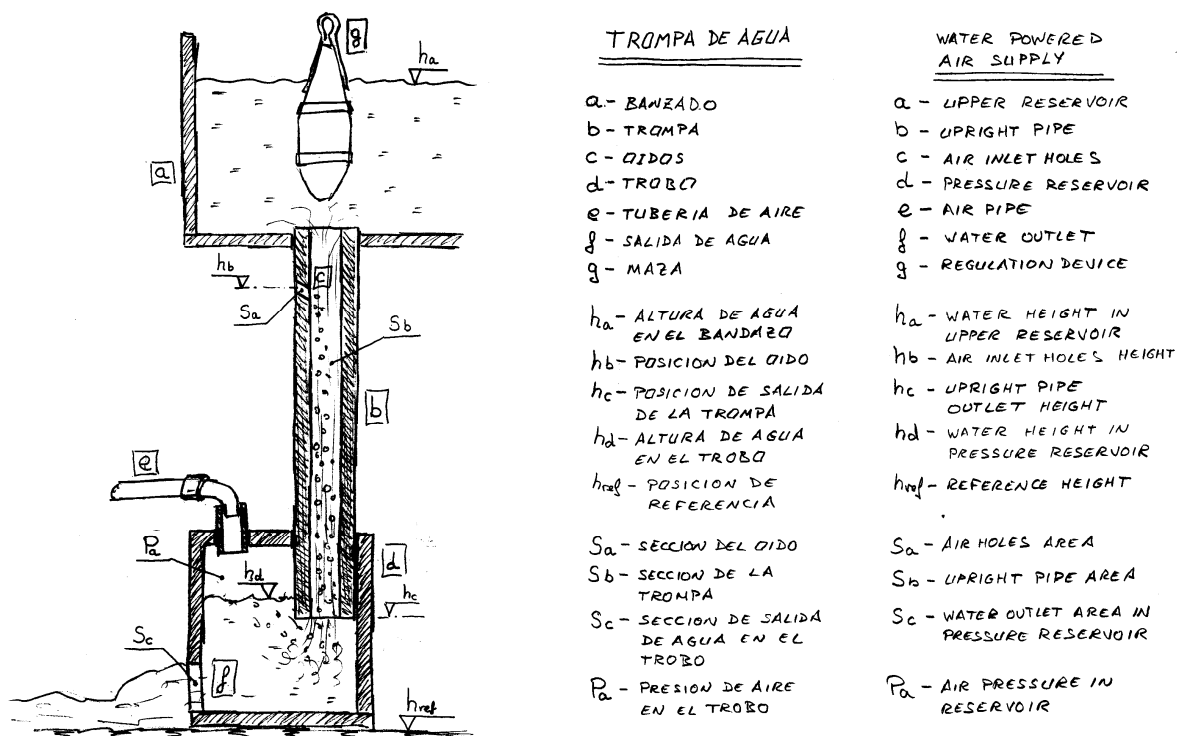 g
ha
a
hb
c
Sa
Sb
b
e
Pa
d
hd
hc
Sc
f
href
TROMPA DE AGUA
a - BANZADO
b - TROMPA
c - OIDOS
d - TROBO
e - TUBERIA DE AIRE
f - SALIDA DE AGUA
g - MAZA
ha - ALTURA DE AGUA
EN EL BANDAZO
hb - POSICION DEL OIDO
hc - POSICION DE SALIDA
DE LA TROMPA
hd - ALTURA DE AGUA
EN EL TROBO
href - POSICION DE
REFERENCIA
Sa - SECCION DEL OIDO
Sb - SECCION DE LA
TROMPA
Sc - SECCION DE SALIDA
DE AGUA EN EL
TROBO
Pa - PRESION DE AIRE
EN EL TROBO
WATER POWERED
AIR SUPPLY
a - UPPER RESERVOIR
b - UPRIGHT PIPE
c - AIR INLET HOLES
d - PRESSURE RESERVOIR
e - AIR PIPE
f - WATER OUTLET
g - REGULATION DEVICE
ha - WATER HEIGHT IN
UPPER RESERVOIR
hb - AIR INLET HOLES HEIGHT
hc - UPRIGHT PIPE
OUTLET HEIGHT
hd - WATER HEIGHT IN
PRESSURE RESERVOIR
href - REFERENCE HEIGHT
Sa - AIR HOLES AREA
Sb - UPRIGHT PIPE AREA
Sc - WATER OUTLET AREA IN
PRESSURE RESERVOIR
Pa - AIR PRESSURE IN
RESERVOIR